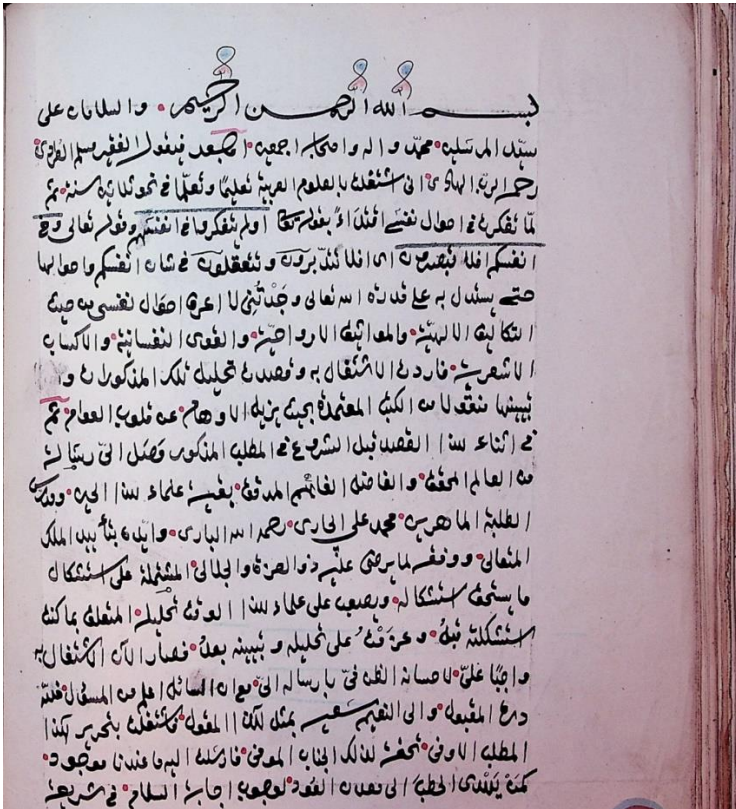 بسم الله الرحمن الرحيم • والسلامان على
سيّد المرسلين • محمّد واله واصحابه اجمعين • وبعد فيقول الفقير مسلم
رحمه الربّ الهادى انى اشتغلت بالعلوم العربيّة تعليمًا وتعلّمًا فى نحو ثلاثين سنة • ثم
لمّا تفكرت فى احوال نفسى اقتداءً بقوله تعالى اولم يتفكروا فى انفسهم وقوله تعالى وفى
انفسكم افلا تبصرون اى افلا تتدبّرون وتتعقلون فى شان انفسكم واحوالها
حتى يستدل به على قدرة الله تعالى وجدتُنى لا اعرف احوال نفسى من حيث
التكاليف الالهيّة • والمواثيق الارواحيّة • والقوى النفسانيّة • والاكساب
الاشعرية • فاردت الاشتغال به وقصدت تحليل تلك المذكورات و
تبيينها منقولا من الكتب المعتمدة بحيث يزيل الاوهام عن قلوب العوام • ثم
فى اثناء هذا القصد قبل الشروع فى المطلب المذكور وصل الىّ رسالة
من العالم المحقق • والفاضل الفاهم المدقق • بقيّة علماء هذا الحين •
الطلبة الماهرين • محمد على الجارى • رحمه الله البارى • وايّده بتأييد الملك
المتعالى • ووفقه لما يرضى عليه ذو العزة والجلال • المشتملة على استشكال
ما يستحق استشكاله • ويصعب على علماء هذا الوقت تحليله • المتعلق بما كنت
استشكلته قبلُ • وعزمتُ على تحليله وتبيينه بعدُ • فصار الآن الاشتغال به
واجبًا علىّ • لاحسانه الظن فىّ بارساله الىّ مع ان السائل اعلم من المسئول • فلبّة
درع المقبول • والى التفهيم بمثل ذلك المقول • فاشتغلت بتحرير هكذا
المطلب الاوفى • تحفة لذلك الجناب الموفى • فارسلت اليه ما عندنا موجود •
لوجوب اجابة السلام • فى شريعة